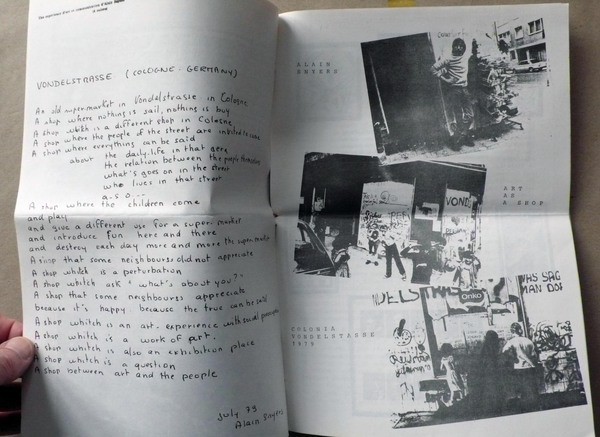 VONDELSTRASSE (COLOGNE - GERMANY)
An old supermarket in Vondelstrasse in Cologne
A shop where nothing is sail, nothing is buy
A shop which is a different shop in Cologne
A shop where the people of the street are invited to
A shop where everything can be said
about the daily life in that aera
the relation between the people themselves
what's goes on in the street
who lives in that street
a.s.o. --
A shop where the children come
and play
and give a different use for a super market
and introduce fun here and there
and destroy each day more and more the supermarket
A shop that some neighbours did not appreciate
A shop whitch is a perturbation
A shop whitch ask "what's about you?"
A shop that some neighbours appreciate
because it's happy because the true can be said
A shop whitch is an art. experience with social
A shop whitch is a work of art.
A shop whitch is also an exhibition place
A shop whitch is a question
A shop between art and the people
July 79
Alain Snyers
ALAIN
SNYERS
ART
AS
A SHOP
VOND
WAS SAG
MAN DO
Onko
COLONIA
VONDELSTASSE
1979